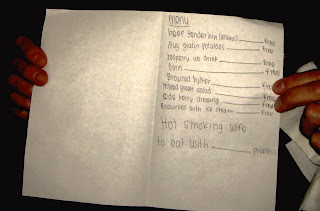 Menu
beef tenderloin (grilled) ______ free
Aug gratin potatoes ______ free
raspberry ice drink ______ free
corn ______ free
Browned butter ______ free
Mixed green salad ______ free
cida berry dressing ______ free
Brownies with ice cream ______ free
Hot smoking wife
to eat with ______ priceless